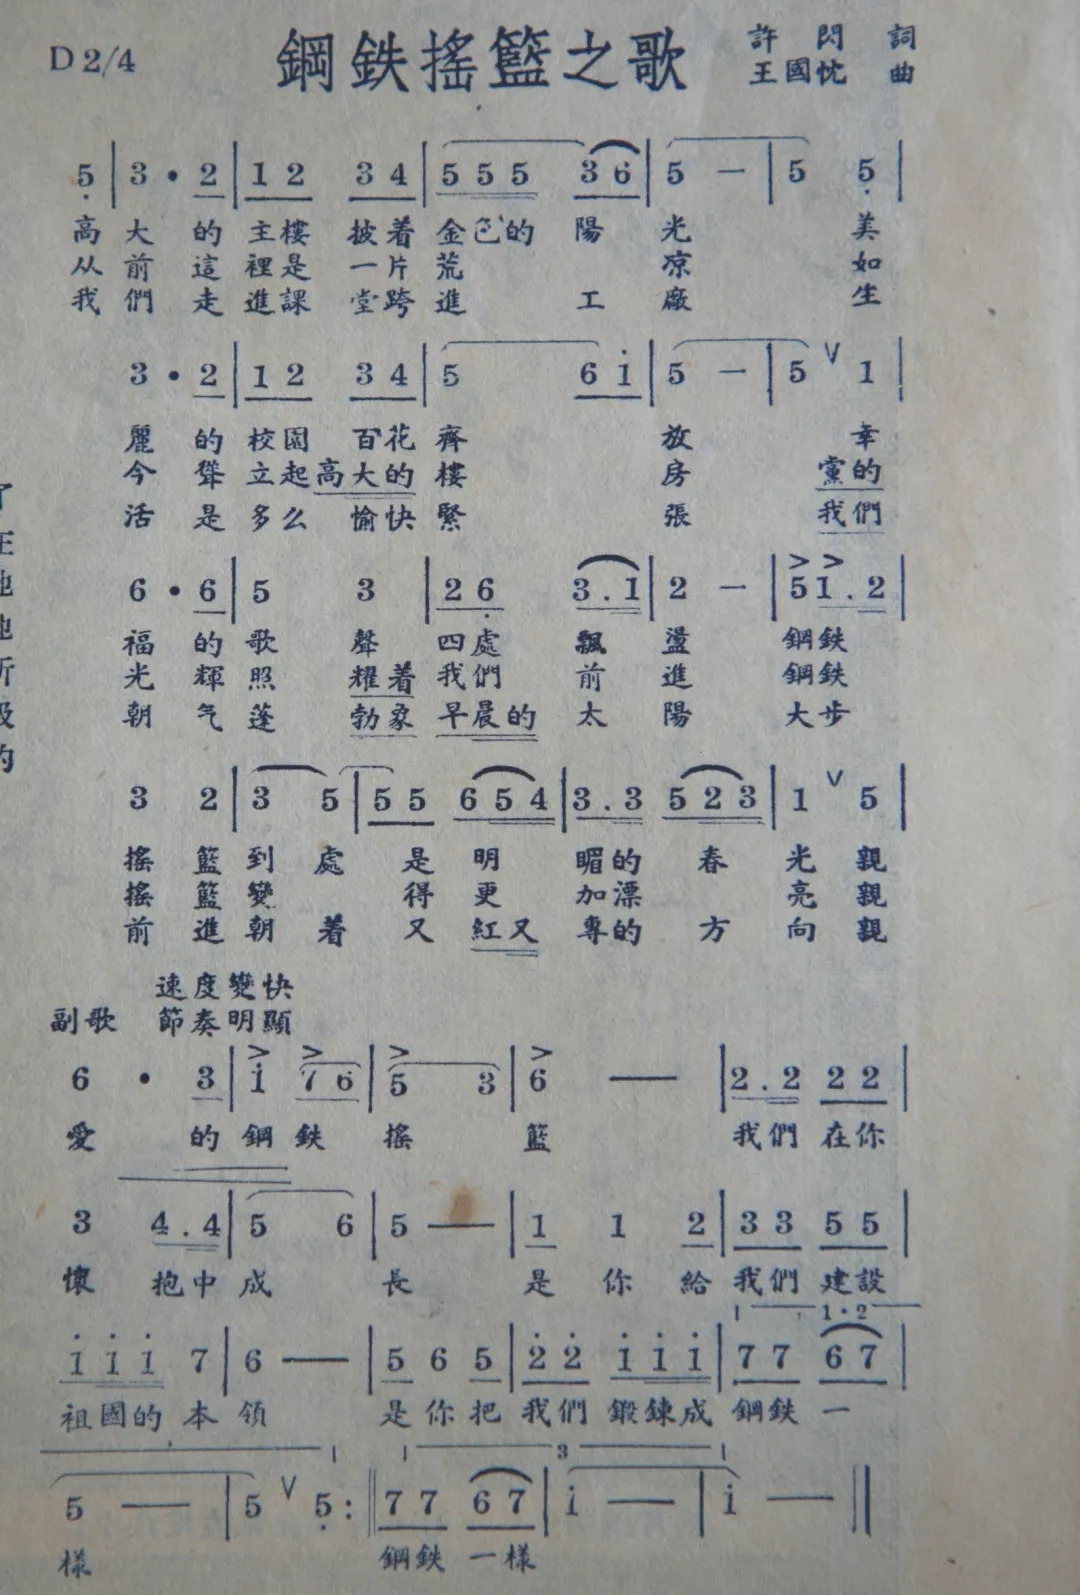 D 2/4
鋼鉄搖籃之歌
許閃 詞
王國忱 曲
5 | 3 · 2 | 1 2 3 4 | 5 5 5 3 6 | 5 — | 5 5 |
高大的主樓披着金色的陽光 美
从前這裡是一片荒凉 如
我們走進課堂跨進工廠 生
3 · 2 | 1 2 3 4 | 5 6 i | 5 — | 5 ∨ 1 |
麗的校園百花齊放 幸
今聳立起高大的樓房 黨的
活是多么愉快緊張 我們
6 · 6 | 5 3 | 2 6 3 . 1 | 2 — | 5 1 . 2 |
福的歌聲四處飄盪 鋼鉄
光輝照耀着我們前進 鋼鉄
朝气蓬勃象早晨的太陽 大步
3 2 | 3 5 | 5 5 6 5 4 | 3 . 3 5 2 3 | 1 ∨ 5 |
搖籃到處是明媚的春光 親
搖籃變得更加漂亮 親
前進朝着又紅又專的方向 親
速度變快
副歌 節奏明顯
6 · 3 | i 7 6 | 5 3 | 6 — | 2 . 2 2 2 |
愛的鋼鉄搖籃 我們在你
3 4 . 4 | 5 6 | 5 — | 1 1 2 | 3 3 5 5 |
懷抱中成長 是你給我們建設
1 · 2
i i i 7 | 6 — | 5 6 5 | 2 2 i i i | 7 7 6 7 |
祖國的本領 是你把我們鍛鍊成鋼鉄一
3
5 — | 5 ∨ 5 :‖ 7 7 6 7 | i — | i — ‖
樣 鋼鉄一樣